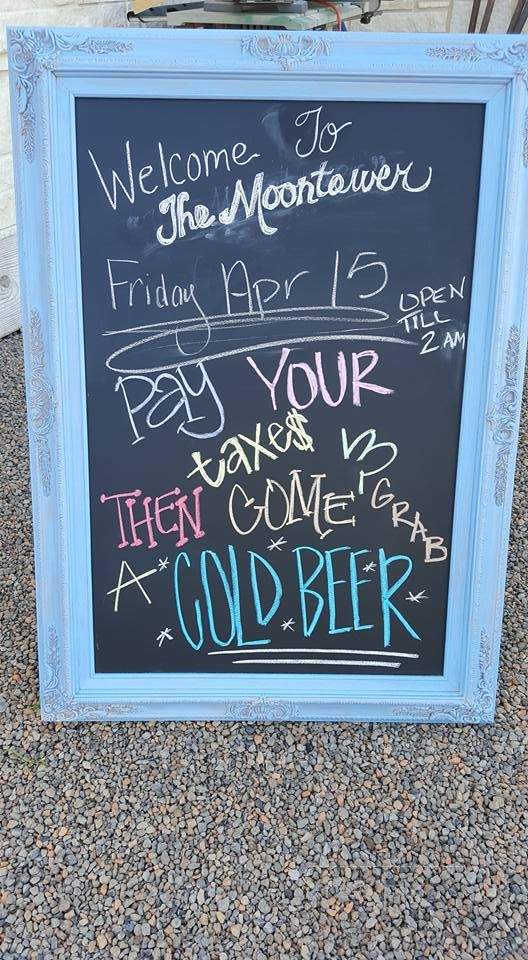 Welcome To
The Moontower
Friday Apr 15
OPEN
TILL
2 AM
Pay YOUR
taxe$
THEN COME GRAB
A COLD BEER